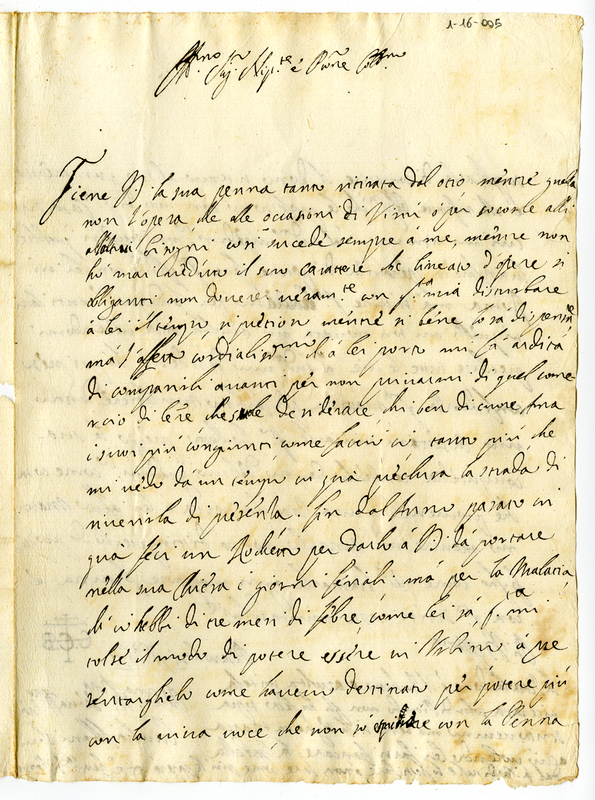 1-16-005
Sig. Nip.te è Pãne
Tiene V.S. la sua penna tanto ritirata dal otio, mentre quella
non l'opera, che alle occasioni di Virtù ò per socorre alli
bisogni così sucede sempre à me, mentre non
hò mai veduto il suo caratere che lineato d'opere si
obliganti non doverei veram.te con q.ta mia disturbare
à lei il tempo si pretioso mentre si bene lo sà dispensare
mà l'affetto cordialiss.mo ch'à lei porto mi fà ardita
di comparirli avanti per non privarmi di quel come
rcio di lẽre che suole desiderare chi ben di cuore ama
i suoi più congiunti come faccio io tanto più che
mi vedo dà un tempo in quà preclusa la strada di
riverirla di presenza. Fin dal Anno pasato in
quà feci un Rochetto per darlo à V.S. dà portare
nella sua Chiesa i giorni feriali mà per la Malatia
ch'io hebbi di tre mesi di febre come lei sà, q.ta mi
tolse il modo di potere essere in Urbino à pre
sentarglielo come havevo destinato per potere più
con la viva voce, che non sò con la Penna